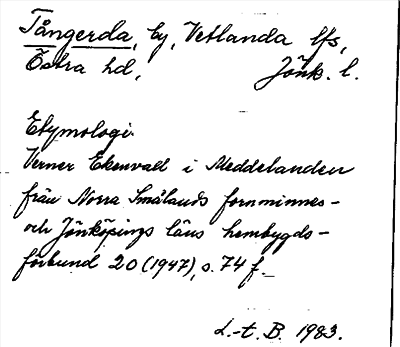 Tångerda, by, Vetlanda lfs,
Östra hd, Jönk. l.
Etymologi.
Verner Ekenvall i Meddelanden
från Norra Smålands fornminnes-
och Jönköpings läns hembygds-
förbund 20 (1947), s. 74 f.
L.-t. B. 1983.